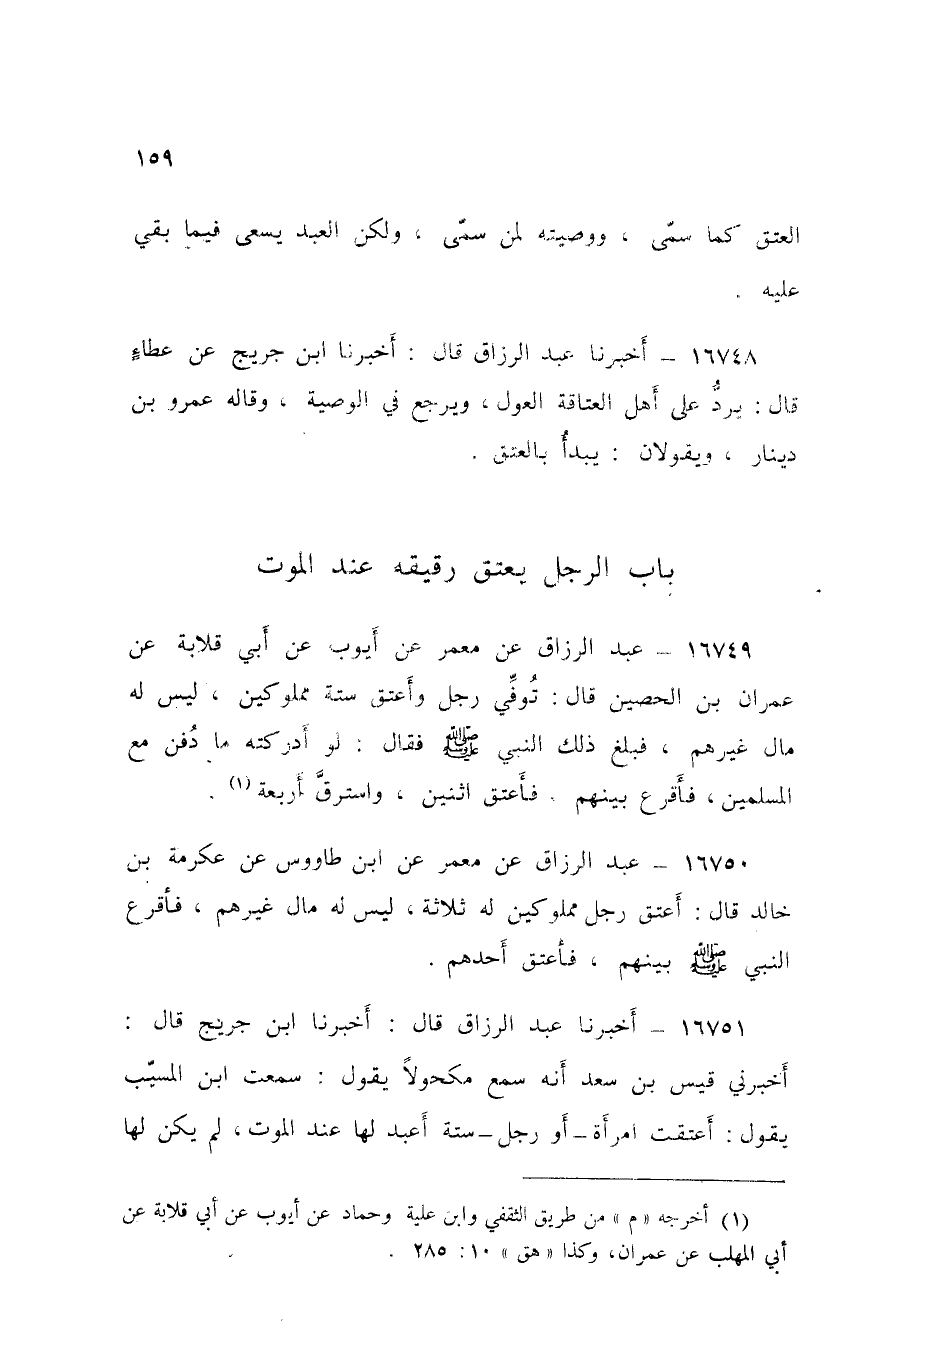 ١٥٩
العتق كما سمّى ، ووصيته لمن سمّى ، ولكن العبد يسعى فيما بقي
عليه .
١٦٧٤٨ – أخبرنا عبد الرزاق قال : أخبرنا ابن جريج عن عطاءٍ
قال : يردُّ على أهل العتاقة العول ، ويرجع في الوصية ، وقاله عمرو بن
دينار ، ويقولان : يبدأُ بالعتق .
باب الرجل يعتق رقيقه عند الموت
١٦٧٤٩ – عبد الرزاق عن معمر عن أَيوب عن أَبي قلابة عن
عمران بن الحصين قال : تُوفِّي رجل وأَعتق ستة مملوكين ، ليس له
مال غيرهم ، فبلغ ذلك النبي ﷺ فقال : لو أَدركته ما دُفن مع
المسلمين ، فأَقرع بينهم . فأَعتق اثنين ، واسترقَّ أَربعة (١) .
١٦٧٥٠ – عبد الرزاق عن معمر عن ابن طاووس عن عكرمة بن
خالد قال : أَعتق رجل مملوكين له ثلاثة ، ليس له مال غيرهم ، فأَقرع
النبي ﷺ بينهم ، فأَعتق أَحدهم .
١٦٧٥١ – أَخبرنا عبد الرزاق قال : أَخبرنا ابن جريج قال :
أَخبرني قيس بن سعد أَنه سمع مكحولاً يقول : سمعت ابن المسيّب
يقول : أَعتقت امرأَة – أَو رجل – ستة أَعبد لها عند الموت ، لم يكن لها
(١) أخرجه « م » من طريق الثقفي وابن علية وحماد عن أيوب عن أبي قلابة عن
أبي المهلب عن عمران، وكذا « هق » ١٠ : ٢٨٥ .